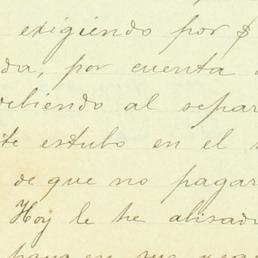 exigiendo por $
da, por cuenta
debiendo al repar
te estubo en el
de que no pagar
Hoy le he abisad